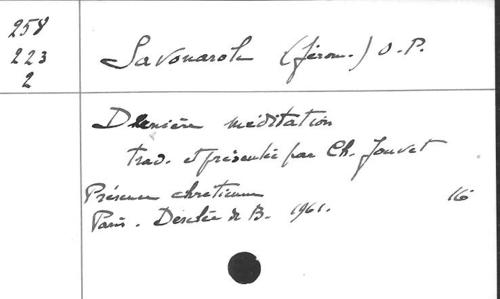 258
223
2
Savonarole (Jérom.) O.P.
Dernière méditation
trad. et présentée par Ch. Jouvet
Présence chrétienne
Paris. Desclée de B. 1961. 16